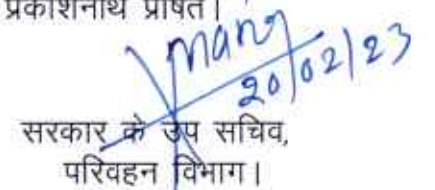 प्रकाशनार्थ प्रेषित।
20/02/23
सरकार के उप सचिव,
परिवहन विभाग।